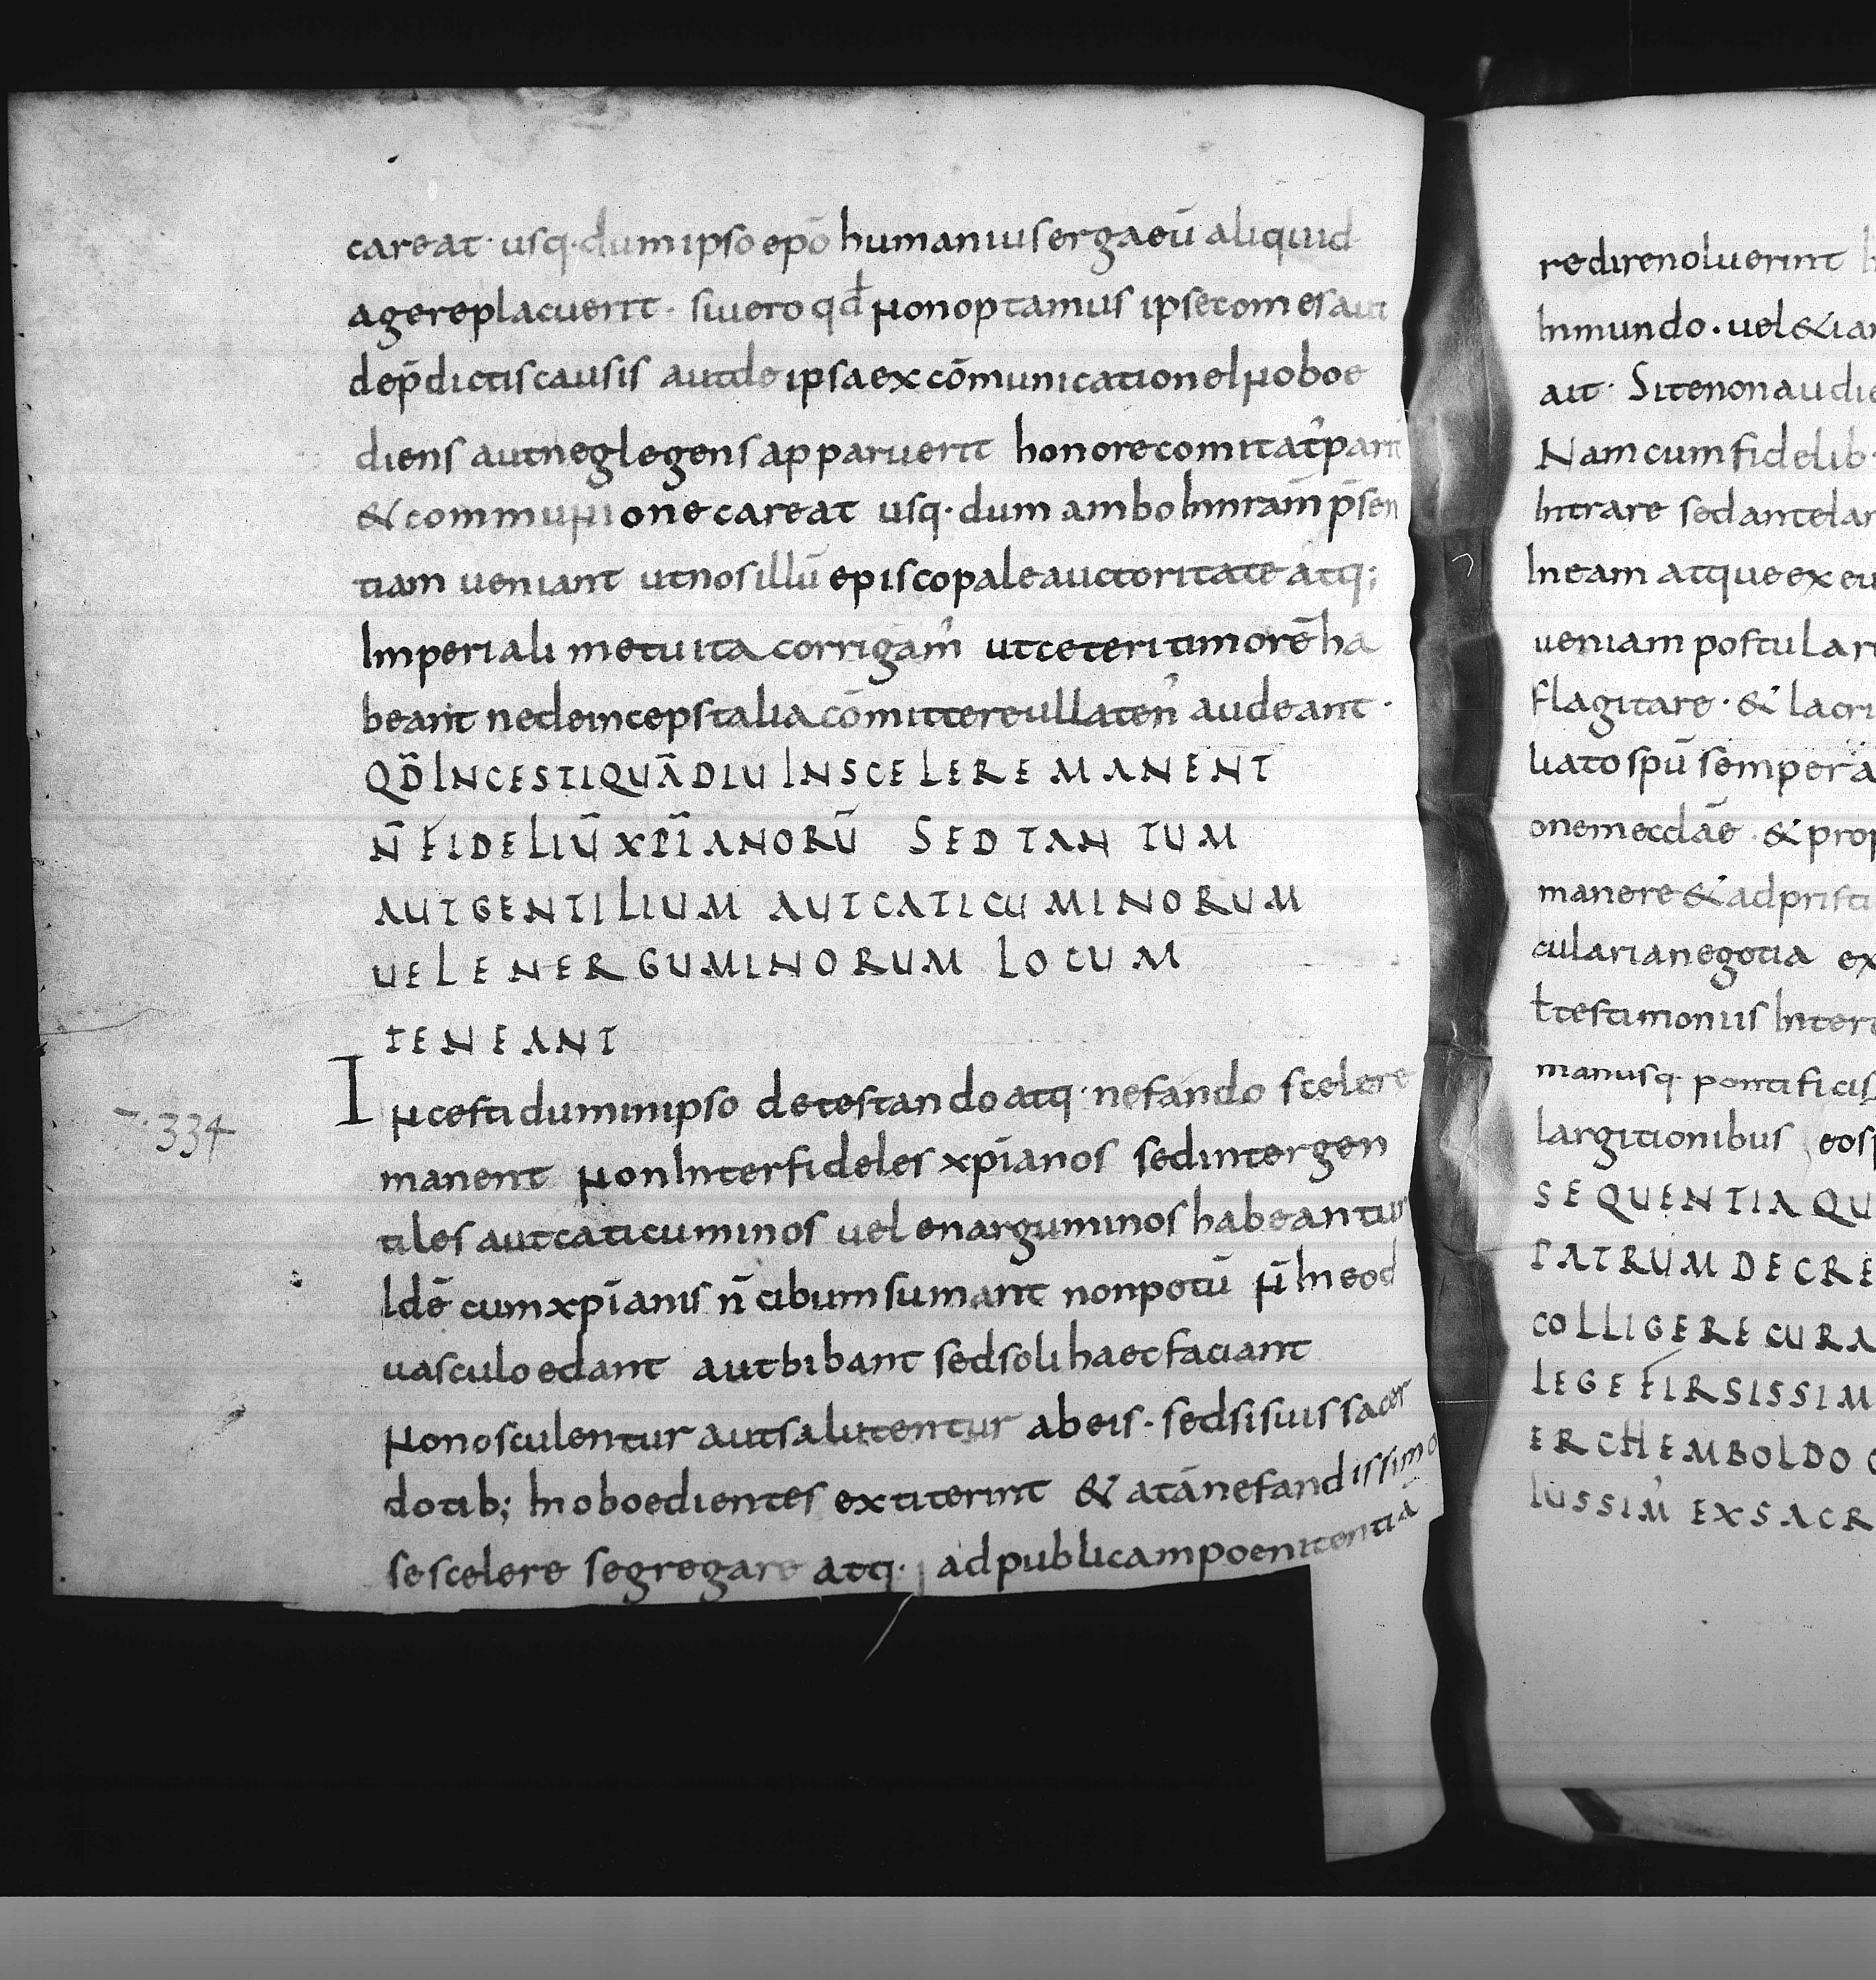 careat· usq·dum ipso epō humanius erga eū aliquid
agere placuerit· si uero qđ non optamus ipse comes aut
de p̄dictis causis aut de ipsa excōmunicatione Inoboe
diens aut neglegens apparuerit honore comitat' pari
& communione careat usq·dum ambo In nr̄am p̄sen
tiam ueniant ut nos illū episcopale auctoritate atq;
Imperiali metu ita corrigam' ut ceteri timorē ha
beant ne deinceps talia cōmittere ullaten' audeant·
QD̄ INCESTI QUĀDIU IN SCELERE MANENT
N̄ FIDELIŪ XP̄IANORŪ SED TANTUM
AUT GENTILIUM AUT CATICUMINORUM
UEL ENERGUMINORUM LOCUM
TENEANT
Incesti dum in ipso detestando atq· nefando scelere
manent non Inter fideles xp̄ianos sed inter gen
tiles aut caticuminos uel enarguminos habeantur
Idē cum xp̄ianis n̄ cibum sumant non potū n̄ In eod
uasculo edant aut bibant sed soli haec faciant
non osculentur aut salutentur ab eis· sed si suis sacer
dotib; Inoboedientes extiterint & a tā nefandissimo
se scelere segregare atq· ad publicam poenitentiā
7·334
redire noluerint
In mundo· uel &iam
ait· Si te non audie
Nam cum fidelib·
Intrare sed ante
In eam atque ex
ueniam postulare
flagitare· & lacri
liato spū semper
onem eccl̄ae· & prop
manere & ad pristi
cularia negotia ex
ł testimoniis Inter
manusq· pontificis
largitionibus eos
SEQUENTIA QU
PATRUM DECRE
COLLIGERE CURA
LEGE FIRSISSIM
ERCHEMBOLDO
IUSSIM' EX SACR